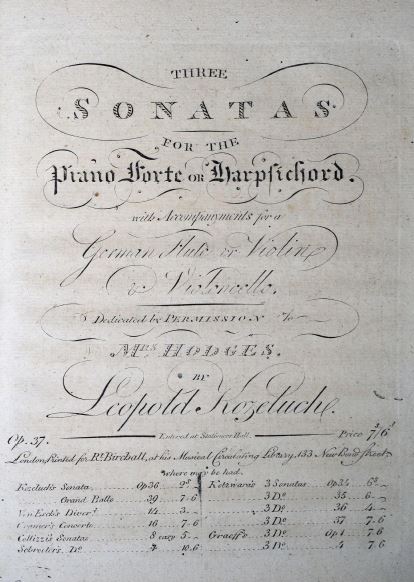 THREE
SONATAS
FOR THE
Piano Forte OR Harpsichord.
with Accompanyments for a
German Flute or Violin
& Violoncello.
Dedicated by PERMISSION to
MRS. HODGES.
BY
Leopold Kozeluch.
Op. 37. Enter'd at Stationers Hall. Price 7/6
London Printed for Rt. Birchall, at his Musical Circulating Library, 133 New Bond Street
where may be had.
Kozeluch's Sonata Op 36 Kotzwara's 3 Sonatas Op 34
Grand Batle 39 7.6 3 Do. 35 6
Van Esch's Divert. 14 3 3 Do. 36 4
Cramer's Concerto 16 7.6 3 Do. 37 7.6
Collizzi's Sonatas 8 easy 5 Graeff's 3 Do. Op 1 7.6
Schroeter's Do. 10.6 3 Do. 4 7.6